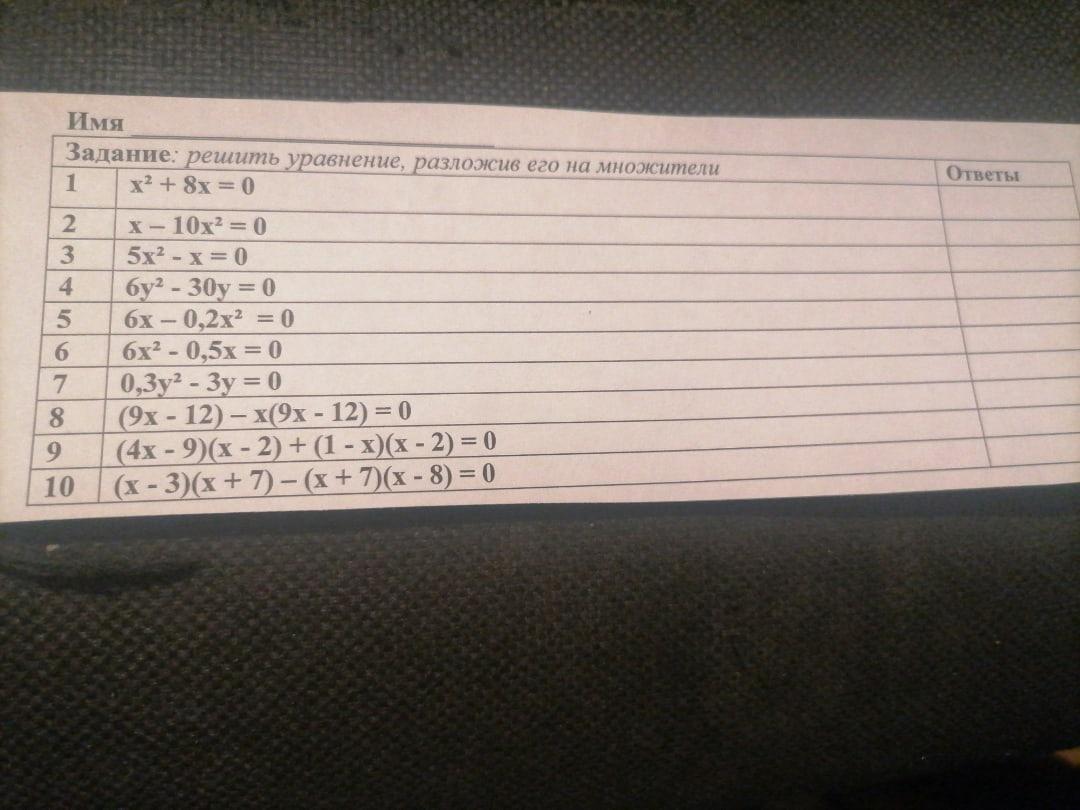 Имя
Задание: решить уравнение, разложив его на множители Ответы
1 x² + 8x = 0
2 x – 10x² = 0
3 5x² - x = 0
4 6y² - 30y = 0
5 6x – 0,2x² = 0
6 6x² - 0,5x = 0
7 0,3y² - 3y = 0
8 (9x - 12) – x(9x - 12) = 0
9 (4x - 9)(x - 2) + (1 - x)(x - 2) = 0
10 (x - 3)(x + 7) – (x + 7)(x - 8) = 0